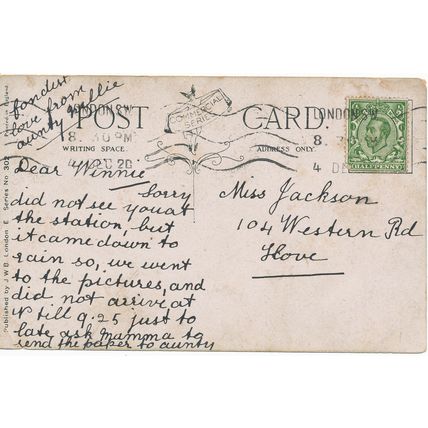 fondest
love from
aunty Nellie
LONDON.S.W
8. 30 PM
4 DEC 20
POST CARD.
COMMERCIAL
SERIES
LONDON.S.W
8.
4 DE
HALFPENNY
WRITING SPACE.
ADDRESS ONLY.
Printed in England
Published by J.W.B. London E. Series No. 302
Dear Winnie
Sorry
did not see you at
the station, but
it came down to
rain so, we went
to the pictures, and
did not arrive at
till 9.25 just to
late ask mamma to
send the paper to aunty
Miss Jackson
104 Western Rd
Hove